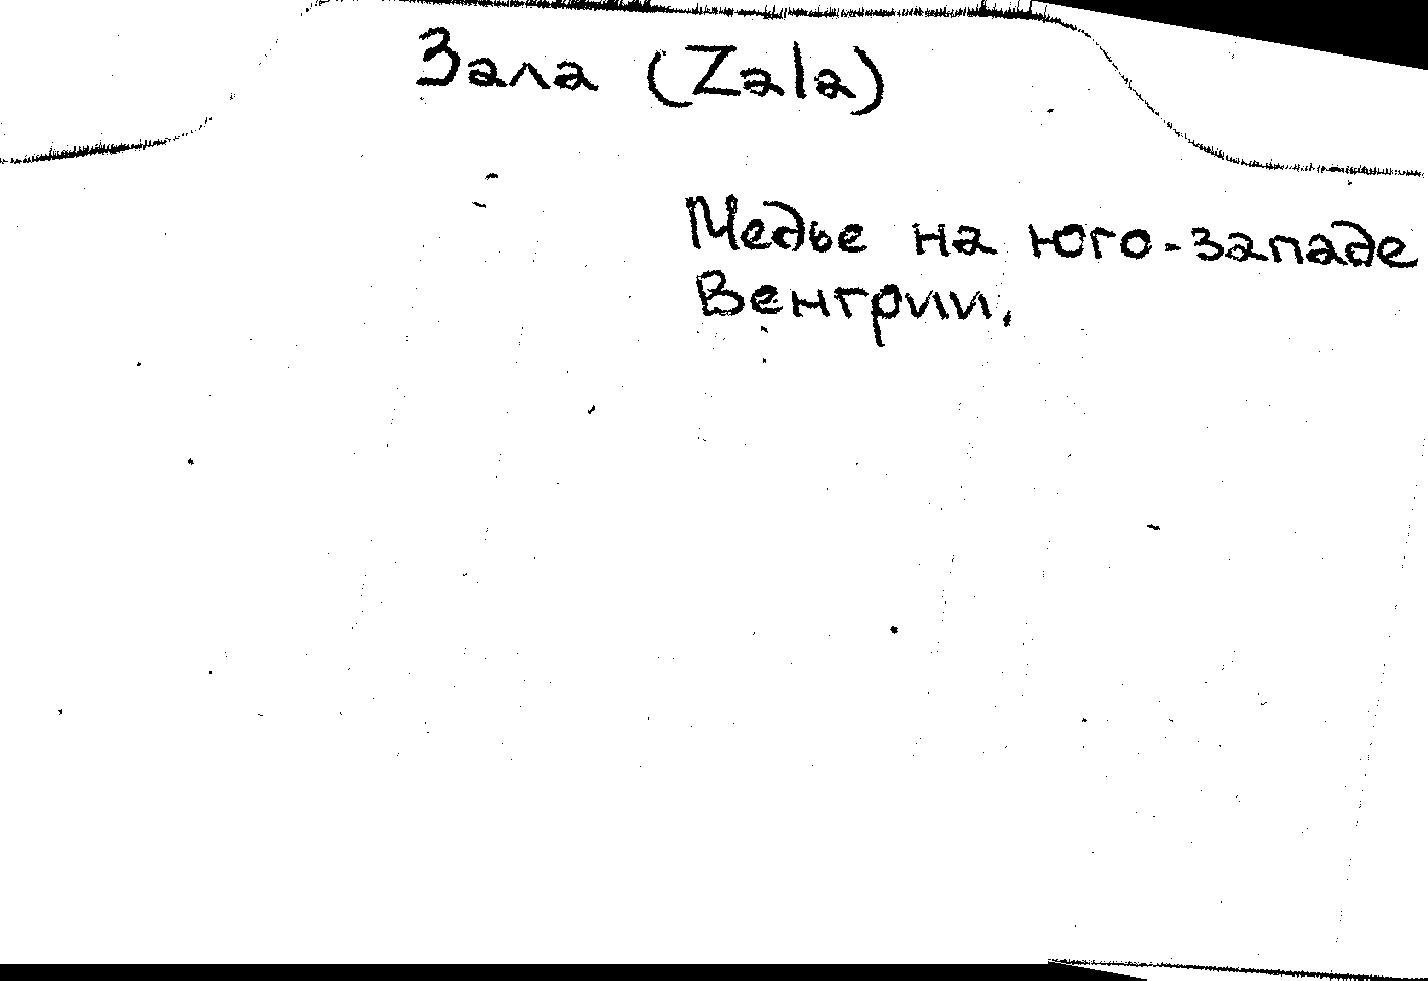 Зала (Zala)
Медье на юго-западе
Венгрии.